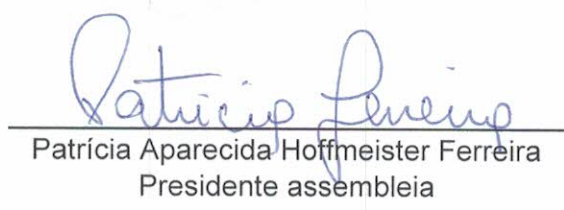 Patricia Ferreira
Patrícia Aparecida Hoffmeister Ferreira
Presidente assembleia